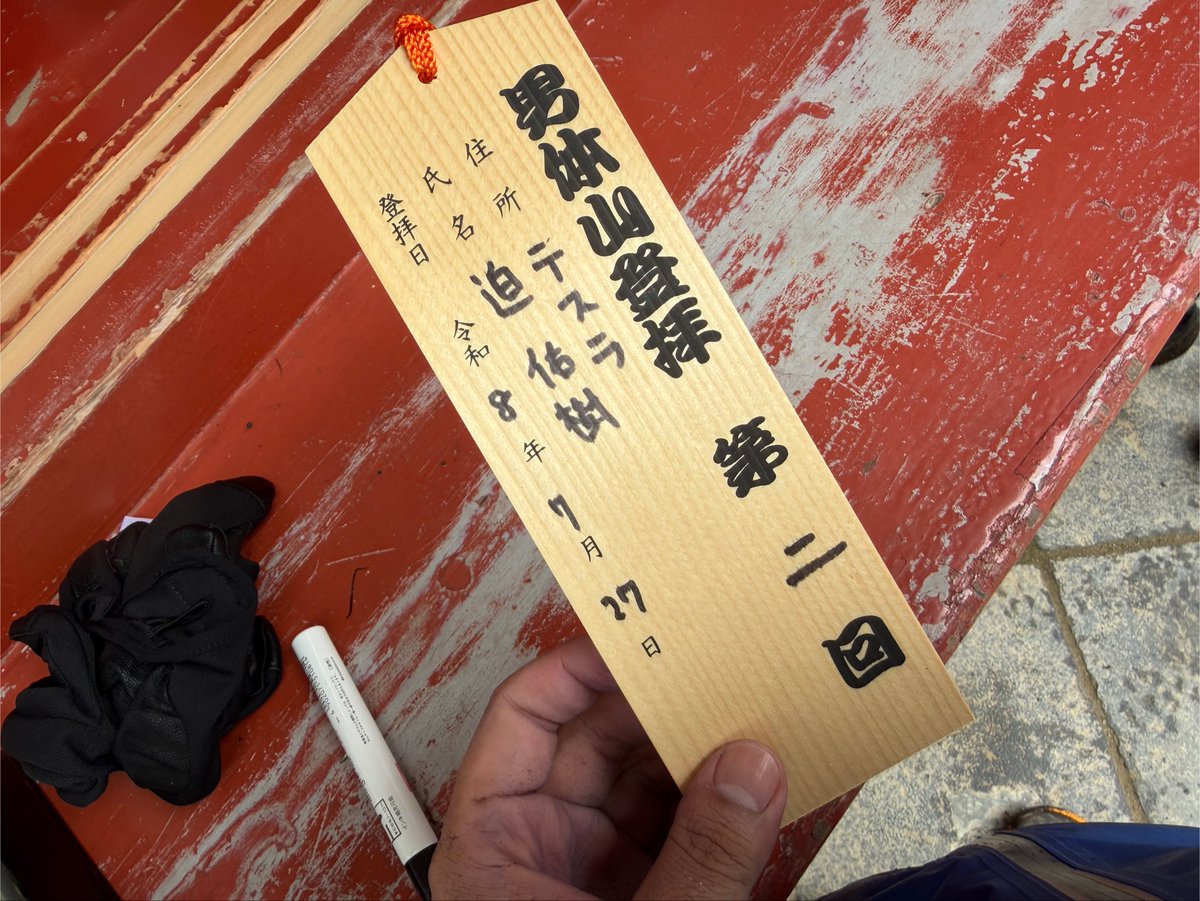 男体山登拝 第二回
住所 テスラ
氏名 迫 佑樹
登拝日 令和8年7月27日